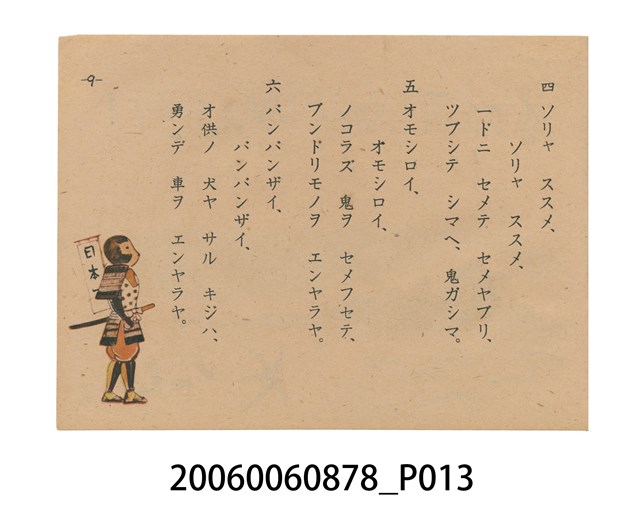 四 ソリャ ススメ、
ソリャ ススメ、
一ドニ セメテ セメヤブリ、
ツブシテ シマヘ、鬼ガシマ。
五 オモシロイ、
オモシロイ、
ノコラズ 鬼ヲ セメフセテ、
ブンドリモノヲ エンヤラヤ。
六 バンバンザイ、
バンバンザイ、
オ供ノ 犬ヤ サル キジハ、
勇ンデ 車ヲ エンヤラヤ。
-9-
日本
20060060878_P013